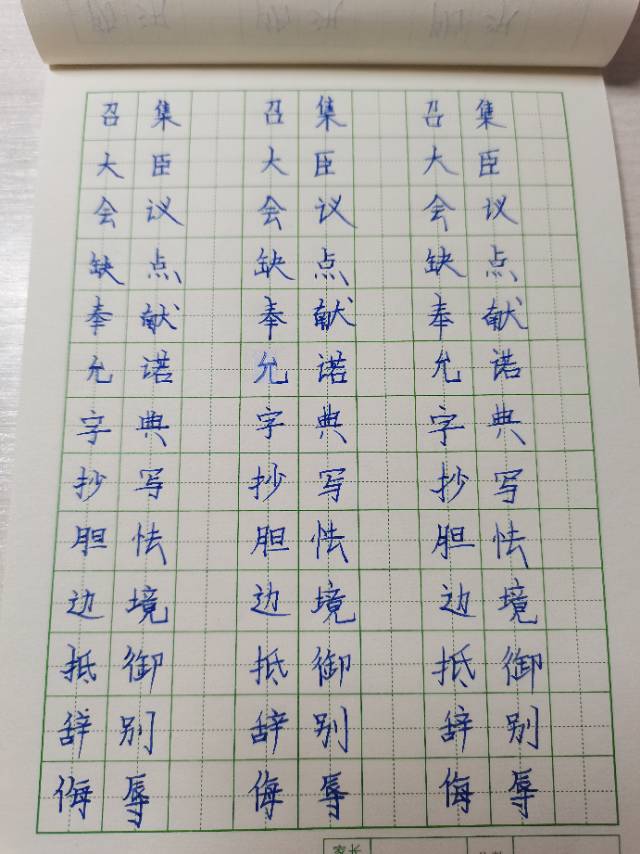 召集 召集 召集
大臣 大臣 大臣
会议 会议 会议
缺点 缺点 缺点
奉献 奉献 奉献
允诺 允诺 允诺
字典 字典 字典
抄写 抄写 抄写
胆怯 胆怯 胆怯
边境 边境 边境
抵御 抵御 抵御
辞别 辞别 辞别
侮辱 侮辱 侮辱
家长